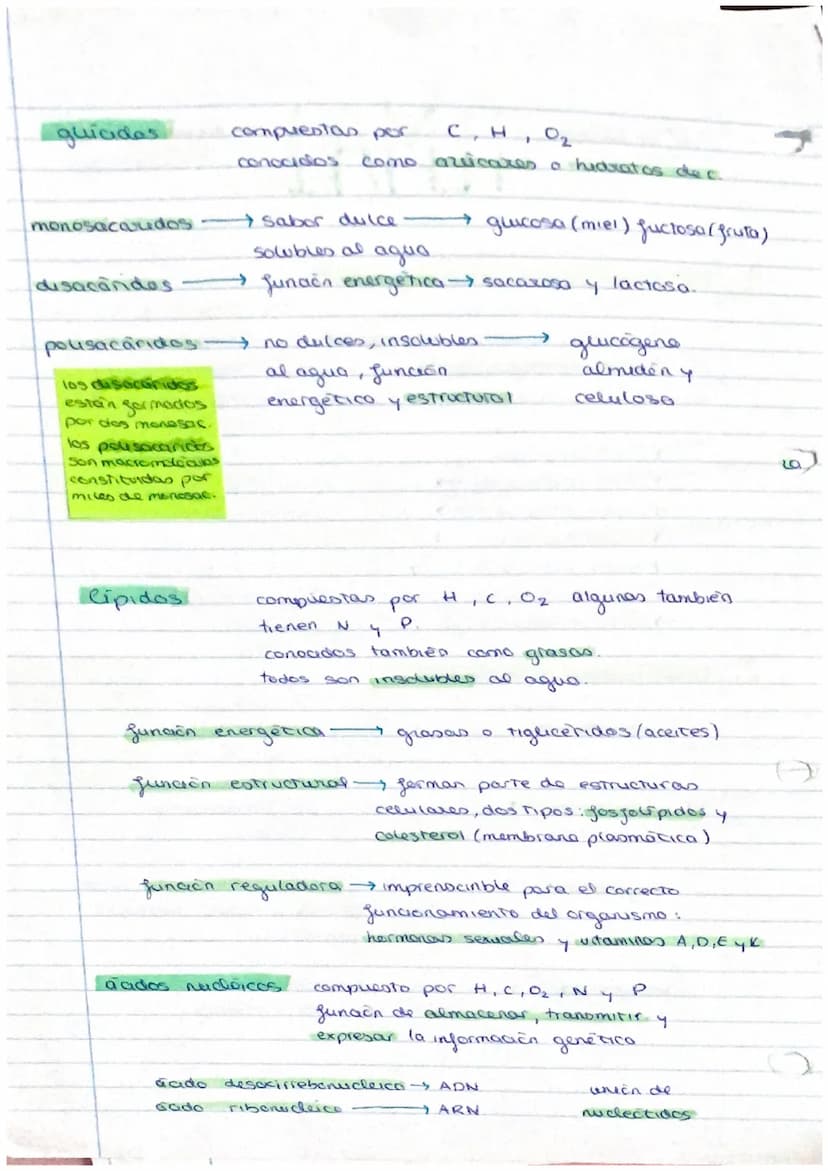 glúcidos compuestas por C, H, O₂
conocidos como azúcares o hidratos de c.
monosacáridos → sabor dulce → glucosa (miel) fuctosa (fruta)
solubles al agua
disacáridos → función energética → sacarosa y lactosa.
polisacáridos → no dulces, insolubles → glucógeno
al agua, función almidón y
energético y estructural celulosa
los disacáridos
están formados
por dos monosac.
los polisacaridos
son macromoléculas
constituidas por
miles de monosac.
lípidos compuestas por H, C, O₂ algunas también
tienen N y P.
conocidos también como grasas.
todos son insolubles al agua.
función energética → grasas o tiglicéridos (aceites)
función estructural → forman parte de estructuras
celulares, dos tipos: fosfolípidos y
colesterol (membrana plasmática)
función reguladora → imprenscinble para el correcto
funcionamiento del organismo:
hormonas sexuales y vitaminas A, D, E y K
ácidos nucléicos compuesto por H, C, O₂, N y P
función de almacenar, transmitir y
expresar la información genético
ácido desoxirribonucleico → ADN unión de
ácido ribonucleico → ARN nucleótidos